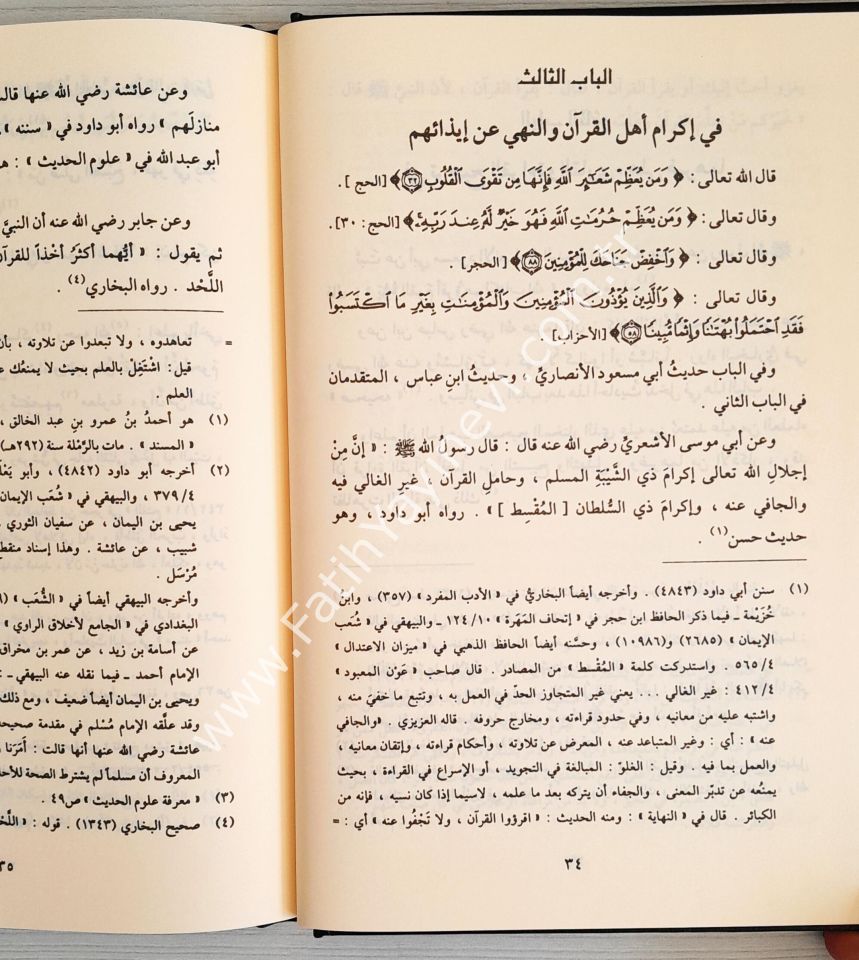 الباب الثالث
في إكرام أهل القرآن والنهي عن إيذائهم
قال الله تعالى : ﴿ وَمَن يُعَظِّمْ شَعَائِرَ اللَّهِ فَإِنَّهَا مِن تَقْوَى الْقُلُوبِ ٣٢﴾ [الحج ] .
وقال تعالى : ﴿ وَمَن يُعَظِّمْ حُرُمَاتِ اللَّهِ فَهُوَ خَيْرٌ لَّهُ عِندَ رَبِّهِ ﴾ [الحج : ٣٠] .
وقال تعالى : ﴿ وَاخْفِضْ جَنَاحَكَ لِلْمُؤْمِنِينَ ٨٨﴾ [الحجر] .
وقال تعالى : ﴿ وَالَّذِينَ يُؤْذُونَ الْمُؤْمِنِينَ وَالْمُؤْمِنَاتِ بِغَيْرِ مَا اكْتَسَبُوا
فَقَدِ احْتَمَلُوا بُهْتَانًا وَإِثْمًا مُّبِينًا ٥٨﴾ [الأحزاب] .
وفي الباب حديثُ أبي مسعود الأنصاريِّ ، وحديثُ ابن عباس ، المتقدمان
في الباب الثاني .
وعن أبي موسى الأشعريِّ رضي الله عنه قال : قال رسولُ الله ﷺ : « إنَّ مِنْ
إجلالِ الله تعالى إكرامَ ذي الشَّيْبَةِ المسلم ، وحاملِ القرآن ، غيرِ الغالي فيه
والجافي عنه ، وإكرامَ ذي السُّلطان [ المُقْسِط ] » . رواه أبو داود ، وهو
حديث حسن(١) .
(١) سنن أبي داود (٤٨٤٣) . وأخرجه أيضاً البخاريُّ في « الأدب المفرد » (٣٥٧) ، وابنُ
خُزَيْمة ـ فيما ذكر الحافظ ابن حجر في « إتحاف المَهَرة » ١٢٤/١٠ ـ والبيهقي في « شُعَب
الإيمان » (٢٦٨٥) و(١٠٩٨٦) ، وحسَّنه أيضاً الحافظ الذهبي في « ميزان الاعتدال »
٥٦٥/٤ . واستدركت كلمة « المُقْسط » من المصادر . قال صاحب « عَوْن المعبود »
٤١٢/٤ : غير الغالي ... يعني غير المتجاوز الحدّ في العمل به ، وتتبع ما خفي منه ،
واشتبه عليه من معانيه ، وفي حدود قراءته ، ومخارج حروفه . قاله العزيزي . «والجافي
عنه » : أي : وغير المتباعد عنه ، المعرض عن تلاوته ، وأحكام قراءته ، وإتقان معانيه ،
والعمل بما فيه . وقيل : الغلوّ : المبالغة في التجويد ، أو الإسراع في القراءة ، بحيث
يمنعُه عن تدبّر المعنى ، والجفاء أن يتركه بعد ما علمه ، لاسيما إذا كان نسيه ، فإنه من
الكبائر . قال في « النهاية » : ومنه الحديث : « اقرؤوا القرآن ، ولا تَجْفُوا عنه » أي : =
٣٤
وعن عائشة رضي الله عنها قالت
منازلَهم » رواه أبو داود في « سننه »
أبو عبد الله في « علوم الحديث » :
وعن جابر رضي الله عنه أن النبيَّ
ثم يقول : « أيُّهما أكثرُ أخْذاً للقرآن
اللَّحْد . رواه البخاري(٤) .
= تعاهدوه ، ولا تبعدوا عن تلاوته ، بأن
قيل: اشتَغِلْ بالعلم بحيث لا يمنعُك عن
العلم .
(١) هو أحمدُ بنُ عمرو بن عبد الخالق ،
« المسند » . مات بالرَّملة سنة (٢٩٢هـ)
(٢) أخرجه أبو داود (٤٨٤٢) ، وأبو يَعْلَى
٣٧٩/٤ ، والبيهقي في « شُعَب الإيمان
يحيى بن اليمان ، عن سفيان الثوري
شبيب ، عن عائشة . وهذا إسناد منقطع
مُرْسَل .
وأخرجه البيهقي أيضاً في « الشُّعَب »
البغدادي في « الجامع لأخلاق الراوي »
عن أسامة بن زيد ، عن عمر بن مخراق
الإمام أحمد ـ فيما نقله عنه البيهقي ـ
ويحيى بن اليمان أيضاً ضعيف ، ومع ذلك
وقد علَّقه الإمام مُسْلم في مقدمة صحيحه
عائشة رضي الله عنها أنها قالت : أَمَرَنا
المعروف أن مسلماً لم يشترط الصحة
(٣) « معرفة علوم الحديث » ص٤٩ .
(٤) صحيح البخاري (١٣٤٣) . قوله :
٣٥
www.FatihYayinevi.com.tr